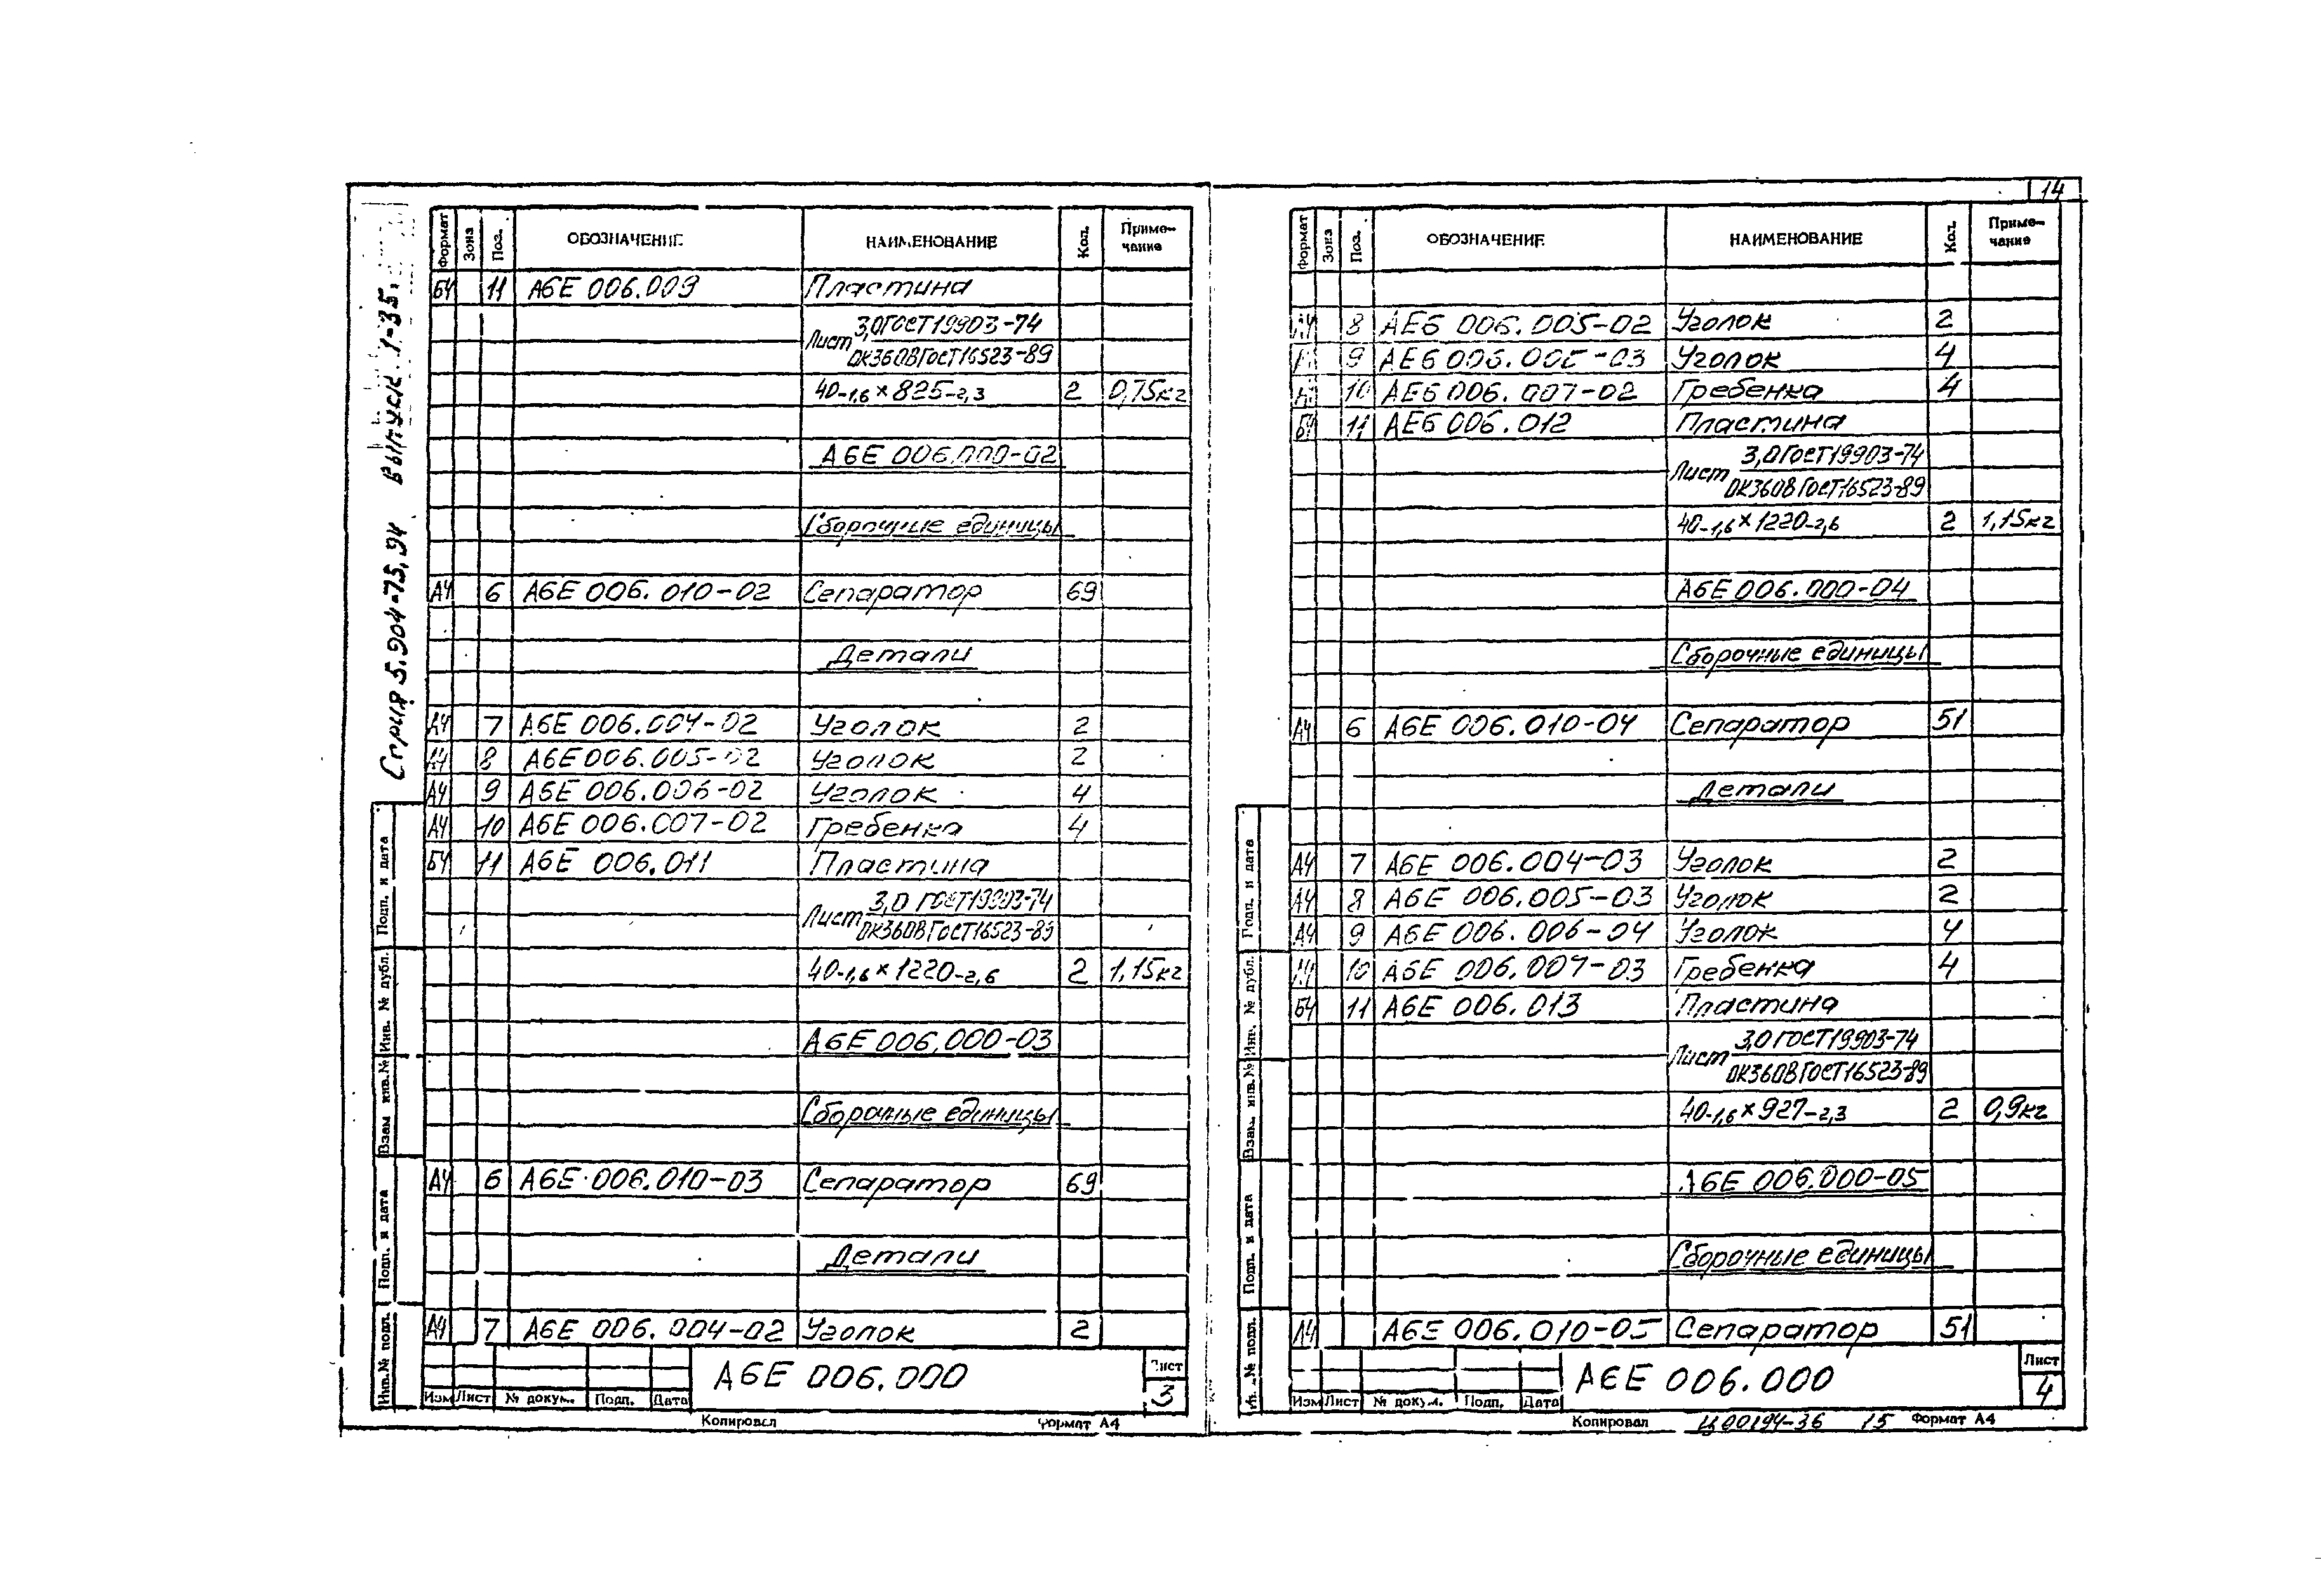 14
Серия 5.904-75.94 Выпуск 1-35.
Формат Зона Поз. ОБОЗНАЧЕНИЕ НАИМЕНОВАНИЕ Кол. Приме-чание
БЧ 11 А6Е 006.009 Пластина
3,0 ГОСТ 19903-74
Лист
ОК360В ГОСТ 16523-89
40-1,6 × 825-2,3 2 0,75кг
А6Е 006.000-02
Сборочные единицы
А4 6 А6Е 006.010-02 Сепаратор 69
Детали
А4 7 А6Е 006.004-02 Уголок 2
А4 8 А6Е 006.005-02 Уголок 2
А4 9 А6Е 006.006-02 Уголок 4
А4 10 А6Е 006.007-02 Гребенка 4
БЧ 11 А6Е 006.011 Пластина
3,0 ГОСТ 19903-74
Лист
ОК360В ГОСТ 16523-89
40-1,6 × 1220-2,6 2 1,15кг
А6Е 006.000-03
Сборочные единицы
А4 6 А6Е 006.010-03 Сепаратор 69
Детали
А4 7 А6Е 006.004-02 Уголок 2
Инв.№ подл. Подп. и дата Взам инв.№ Инв. № дубл. Подп. и дата
А6Е 006.000
Лист
3
Изм Лист № докум. Подп. Дата
Копировал Формат А4
Формат Зона Поз. ОБОЗНАЧЕНИЕ НАИМЕНОВАНИЕ Кол. Приме-чание
А4 8 АЕ6 006.005-02 Уголок 2
9 АЕ6 006.006-03 Уголок 4
10 АЕ6 006.007-02 Гребенка 4
БЧ 11 АЕ6 006.012 Пластина
3,0 ГОСТ 19903-74
Лист
ОК360В ГОСТ 16523-89
40-1,6 × 1220-2,6 2 1,15кг
А6Е 006.000-04
Сборочные единицы
А4 6 А6Е 006.010-04 Сепаратор 51
Детали
А4 7 А6Е 006.004-03 Уголок 2
А4 8 А6Е 006.005-03 Уголок 2
А4 9 А6Е 006.006-04 Уголок 4
А4 10 А6Е 006.007-03 Гребенка 4
БЧ 11 А6Е 006.013 Пластина
3,0 ГОСТ 19903-74
Лист
ОК360В ГОСТ 16523-89
40-1,6 × 927-2,3 2 0,9кг
А6Е 006.000-05
Сборочные единицы
А4 А6Е 006.010-05 Сепаратор 51
Инв.№ подл. Подп. и дата Взам. инв.№ Инв. № дубл. Подп. и дата
А6Е 006.000
Лист
4
Изм Лист № докум. Подп. Дата
Копировал Ц00194-36 15 Формат А4